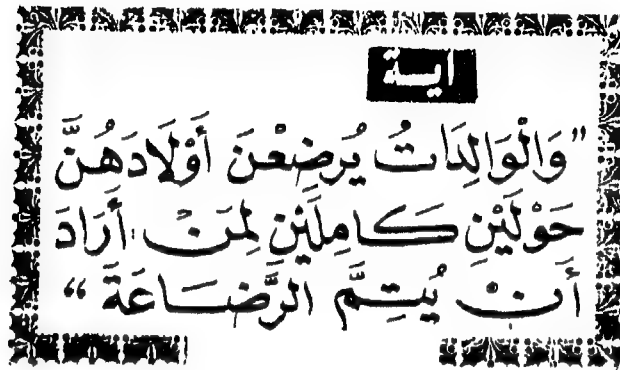 آية
”وَالْوَالِدَاتُ يُرضِعْنَ أَوْلَادَهُنَّ
حَوْلَيْنِ كَامِلَيْنِ لِمَنْ أَرَادَ
أَنْ يُتِمَّ الرَّضَاعَةَ“